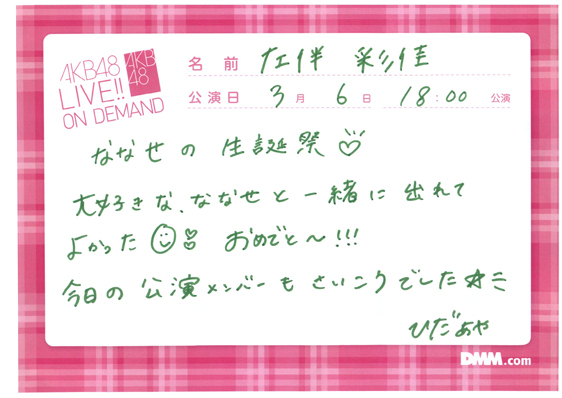 AKB48
LIVE!!
ON DEMAND
AKB
48
名前 左伴 彩佳
公演日 3月 6日 18:00 公演
ななせの 生誕祭♡
大好きな、ななせと一緒に 出れて
よかった おめでと〜!!!
今日の 公演メンバーも さいこうでした☆ミ
ひだあや
DMM.com